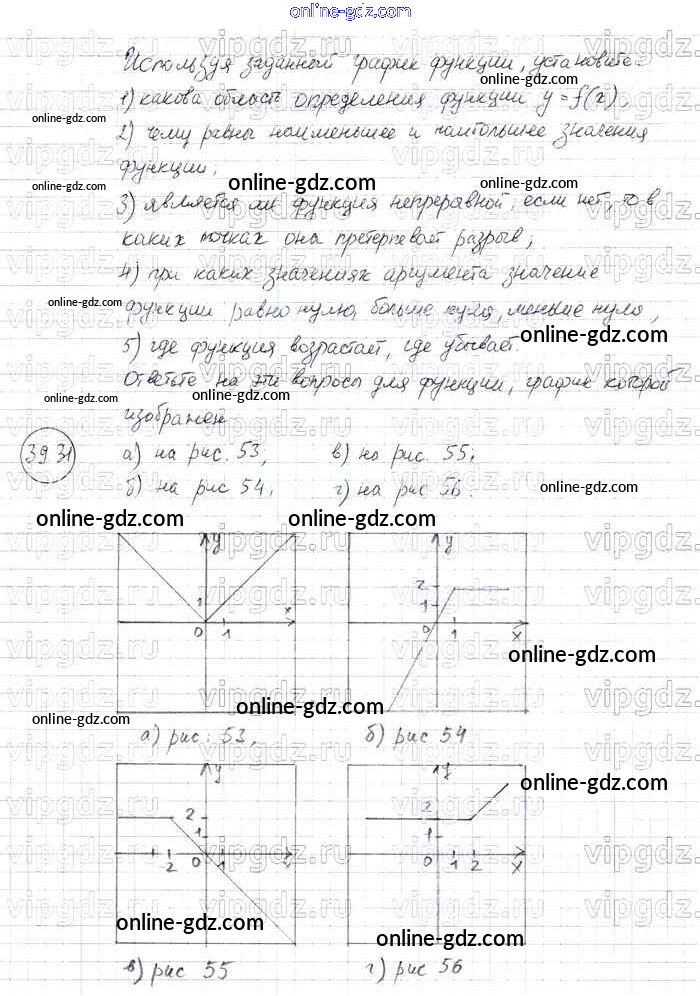 online-gdz.com
Используя заданный график функции, установите:
1) какова область определения функции y=f(x),
2) чему равны наименьшее и наибольшее значения
функции,
online-gdz.com
online-gdz.com
online-gdz.com
3) является ли функция непрерывной, если нет, то в
каких точках она претерпевает разрыв;
4) при каких значениях аргумента значение
online-gdz.com
функции равно нулю, больше нуля, меньше нуля,
online-gdz.com
5) где функция возрастает, где убывает.
Ответьте на эти вопросы для функции, график которой
online-gdz.com
изображен
39 31
а) на рис. 53, в) на рис. 55;
б) на рис 54, г) на рис 56.
online-gdz.com
online-gdz.com online-gdz.com
y y
1 x 2 1
0 1 0 1 x
online-gdz.com
online-gdz.com
а) рис. 53, б) рис 54
y y
online-gdz.com
2 2
1 1
2 0 1 x 0 1 2 x
online-gdz.com
online-gdz.com
в) рис 55 г) рис 56
vipgdz.ru